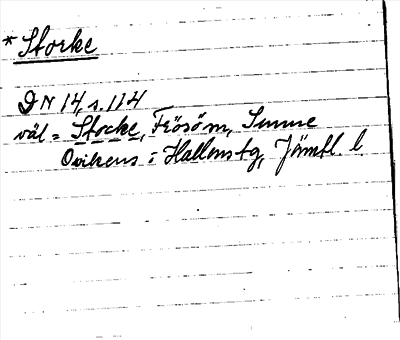 * Storke
DN 14, s. 114
väl = Stocke, Frösöm, Sunne
Ovikens i Hallens tg, Jämtl. l.